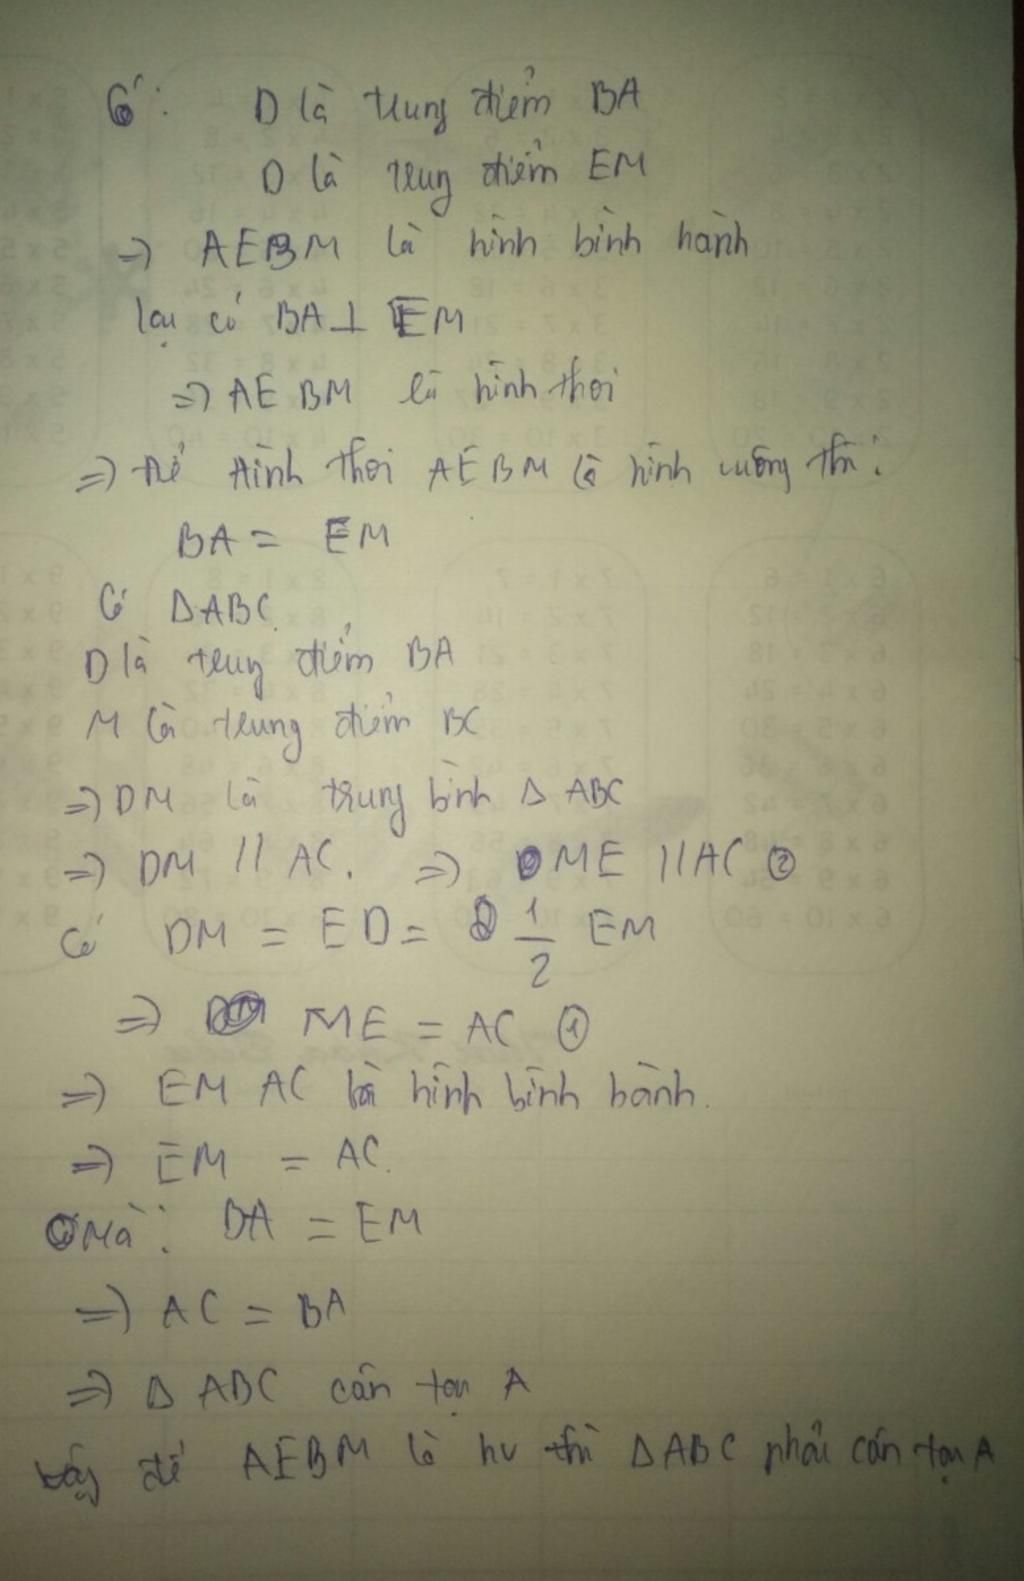 Có: D là trung điểm BA
D là trung điểm EM
=> AEBM là hình bình hành
lại có BA ⊥ EM
=> AEBM là hình thoi
=> để hình thoi AEBM là hình vuông thì:
BA = EM
Có ΔABC
D là trung điểm BA
M là trung điểm BC
=> DM là trung bình Δ ABC
=> DM // AC. => ME // AC ②
Có DM = ED = 1/2 EM
=> ME = AC ①
=> EM AC là hình bình hành.
=> EM = AC.
Mà: BA = EM
=> AC = BA
=> Δ ABC cân tại A
Vậy để AEBM là hv thì ΔABC phải cân tại A